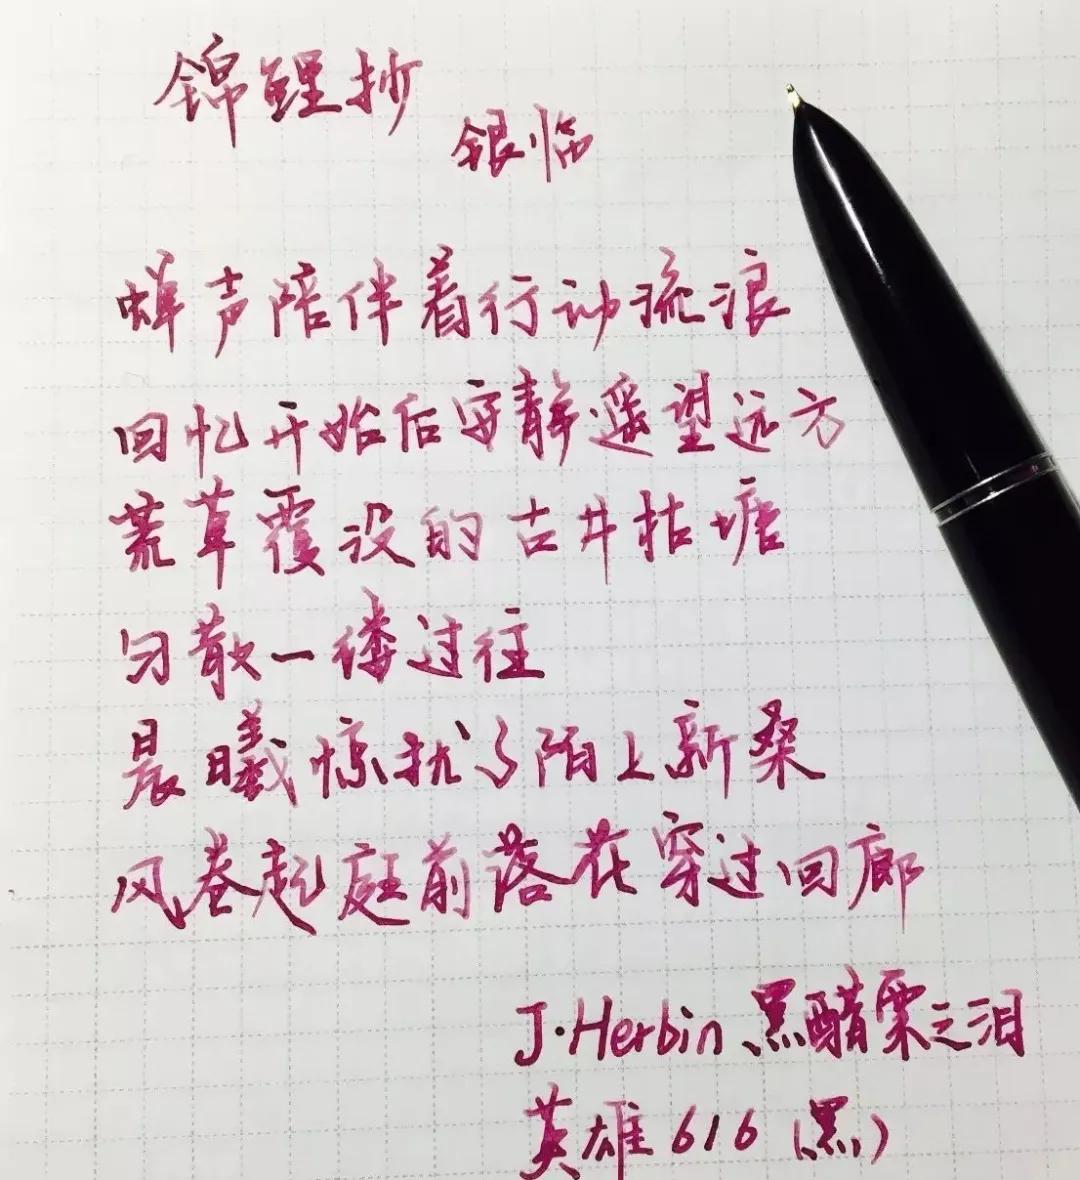 锦鲤抄
银临
蝉声陪伴着行云流浪
回忆开始后安静遥望远方
荒草覆没的古井枯塘
匀散一缕过往
晨曦惊扰了陌上新桑
风卷起庭前落花穿过回廊
J·Herbin 黑醋栗之泪
英雄 616 (黑)